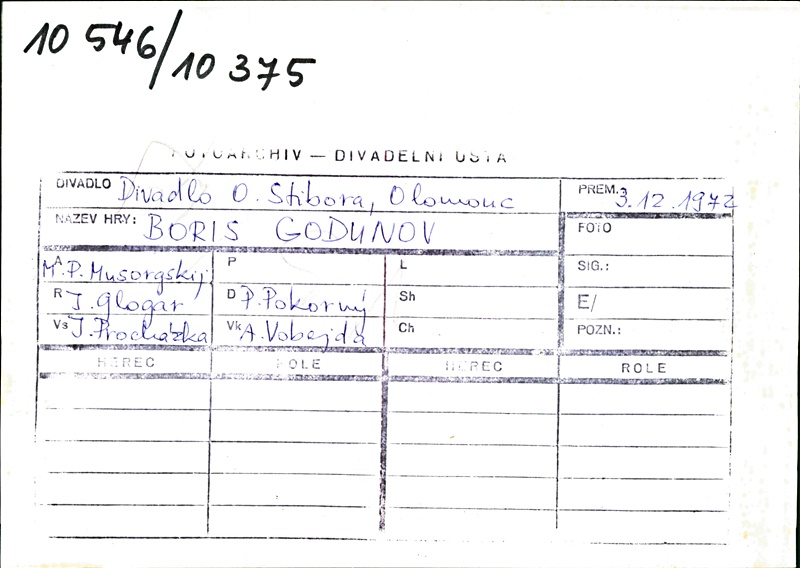 10 546/10 375
FOTOARCHIV — DIVADELNÍ ÚSTA
DIVADLO Divadlo O. Stibora, Olomouc PREM. 3.12.1972
NÁZEV HRY: BORIS GODUNOV FOTO
A M.P. Musorgskij P L SIG.:
R J. Glogar D P. Pokorný Sh E/
Vs J. Procházka Vk A. Vobejda Ch POZN.:
HEREC ROLE HEREC ROLE